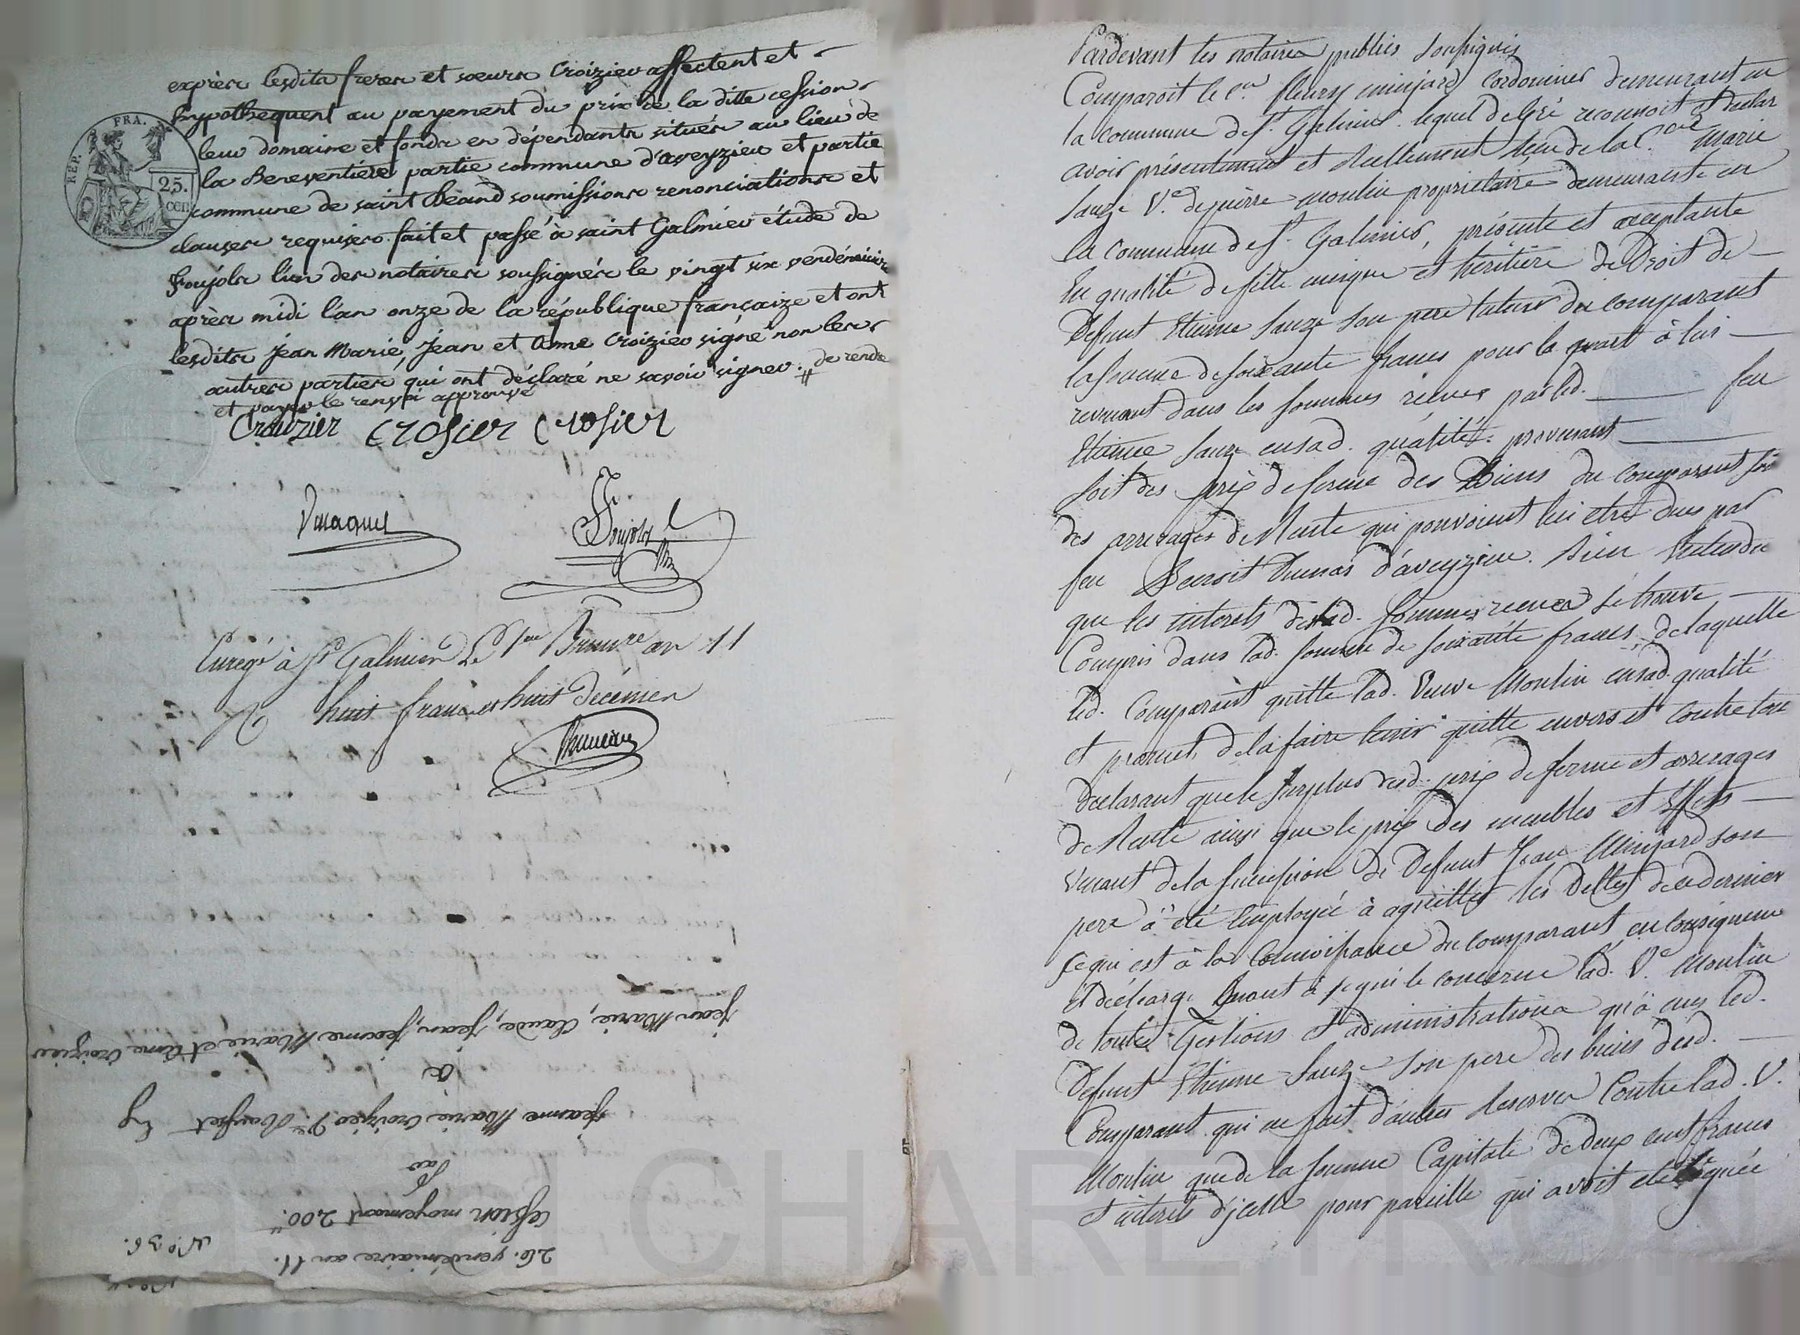 exprès lesdits freres et sœurs Croizier affectent et
hypothequent au payement du prix de la ditte cession
leur domaine et fonds en dépendants situés au lieu de
la Beneventière partie commune d'aveyzieu et partie
commune de saint Béand soumissions renonciations et
clauses requises fait et passé à saint Galmier étude de
Poujols l'un des notaires soussignés le vingt six vendémiaire
après midi l'an onze de la république française et ont
lesdits Jean Marie, Jean et Ame Croizier signé non les
autres parties qui ont déclaré ne savoir signer. de rente
et payer le renvoi approuvé
REP. FRA.
25. CEN
Crouzier Crosier Crosier
Poujols
Enregé à St Galmier Le 1er Brumre an 11
R huit francs et huit décimes
Jean Marie, Claude, Jean, Jeanne Marie et Ame Croizier
à
Jeanne Marie Croizier Ve
par
Cession moyennant 200.
26. vendémiaire an 11.
N° 36.
Pardevant les notaires publics soussignés
Comparoit le Cen fleury minjard Cordonnier demeurant en
la commune de St Galmier lequel de Gré reconnoit et declar
avoir présentement et réellement Reçu de la Cenne Marie
Sauze Ve de pierre moulin propriétaire demeurante en
la commune de St Galmier, présente et acceptante
En qualité de fille unique et héritière de Droit de
Défunt Etienne Sauze son pere tuteur du comparant
la somme de soixante francs pour le quart à lui
revenant dans les sommes reçues par led. feu
Etienne Sauze en sad. qualité. provenant
soit des prix de ferme des Biens du comparant soit
des arrerages de Rente qui pouvoient lui etre dues par
feu Benoit Dumas d'aveyzieu. Bien Entendu
que les interets desd. sommes recues se trouve
Compris dans lad. somme de soixante francs de laquelle
led. Comparant quitte lad. Veuve Moulin en sad. qualité
et promet de la faire tenir quitte envers et contre tous
Déclarant que le surplus desd. prix de ferme et arrerages
de Rente ainsi que le prix des meubles et Effets
venant de la succession de Defunt Jean Minjard son
pere a été employée à aquitter les Dettes de ce dernier
ce qui est à la Connoissance du comparant en consequence
Il décharge Quant à ce qui le concerne lad. Ve Moulin
de toutes Gestions et administrations qu'a eues led.
Défunt Etienne Sauze son pere des biens dud.
Comparant qui ne fait d'autres Reserves Contre lad. V.
Moulin que de la somme Capitale de Deux cent francs
et interets d'icelle pour pareille qui avoit eté léguée
Patrick CHAREYRON